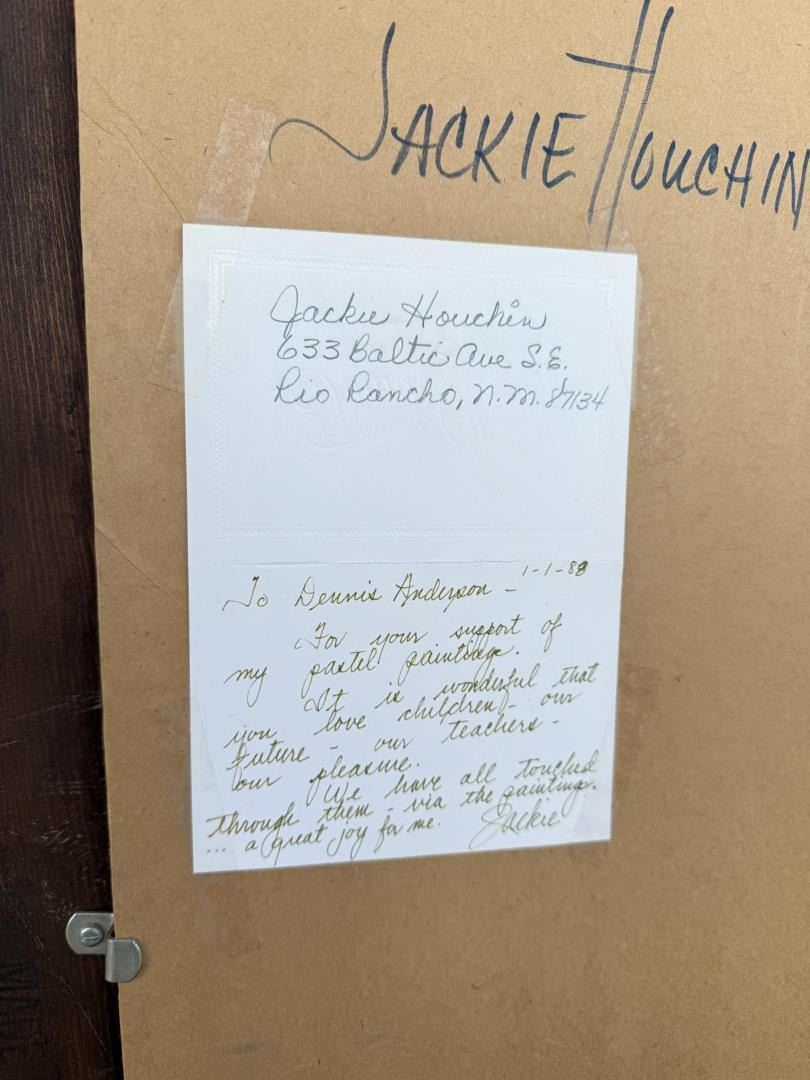 JACKIE HOUCHIN
Jackie Houchin
633 Baltic Ave S.E.
Rio Rancho, N.M. 87134
1-1-88
To Dennis Anderson –
For your support of
my pastel paintings.
It is wonderful that
you love children – our
future – our teachers –
our pleasure.
We have all touched
through them – via the paintings.
... a great joy for me. Jackie